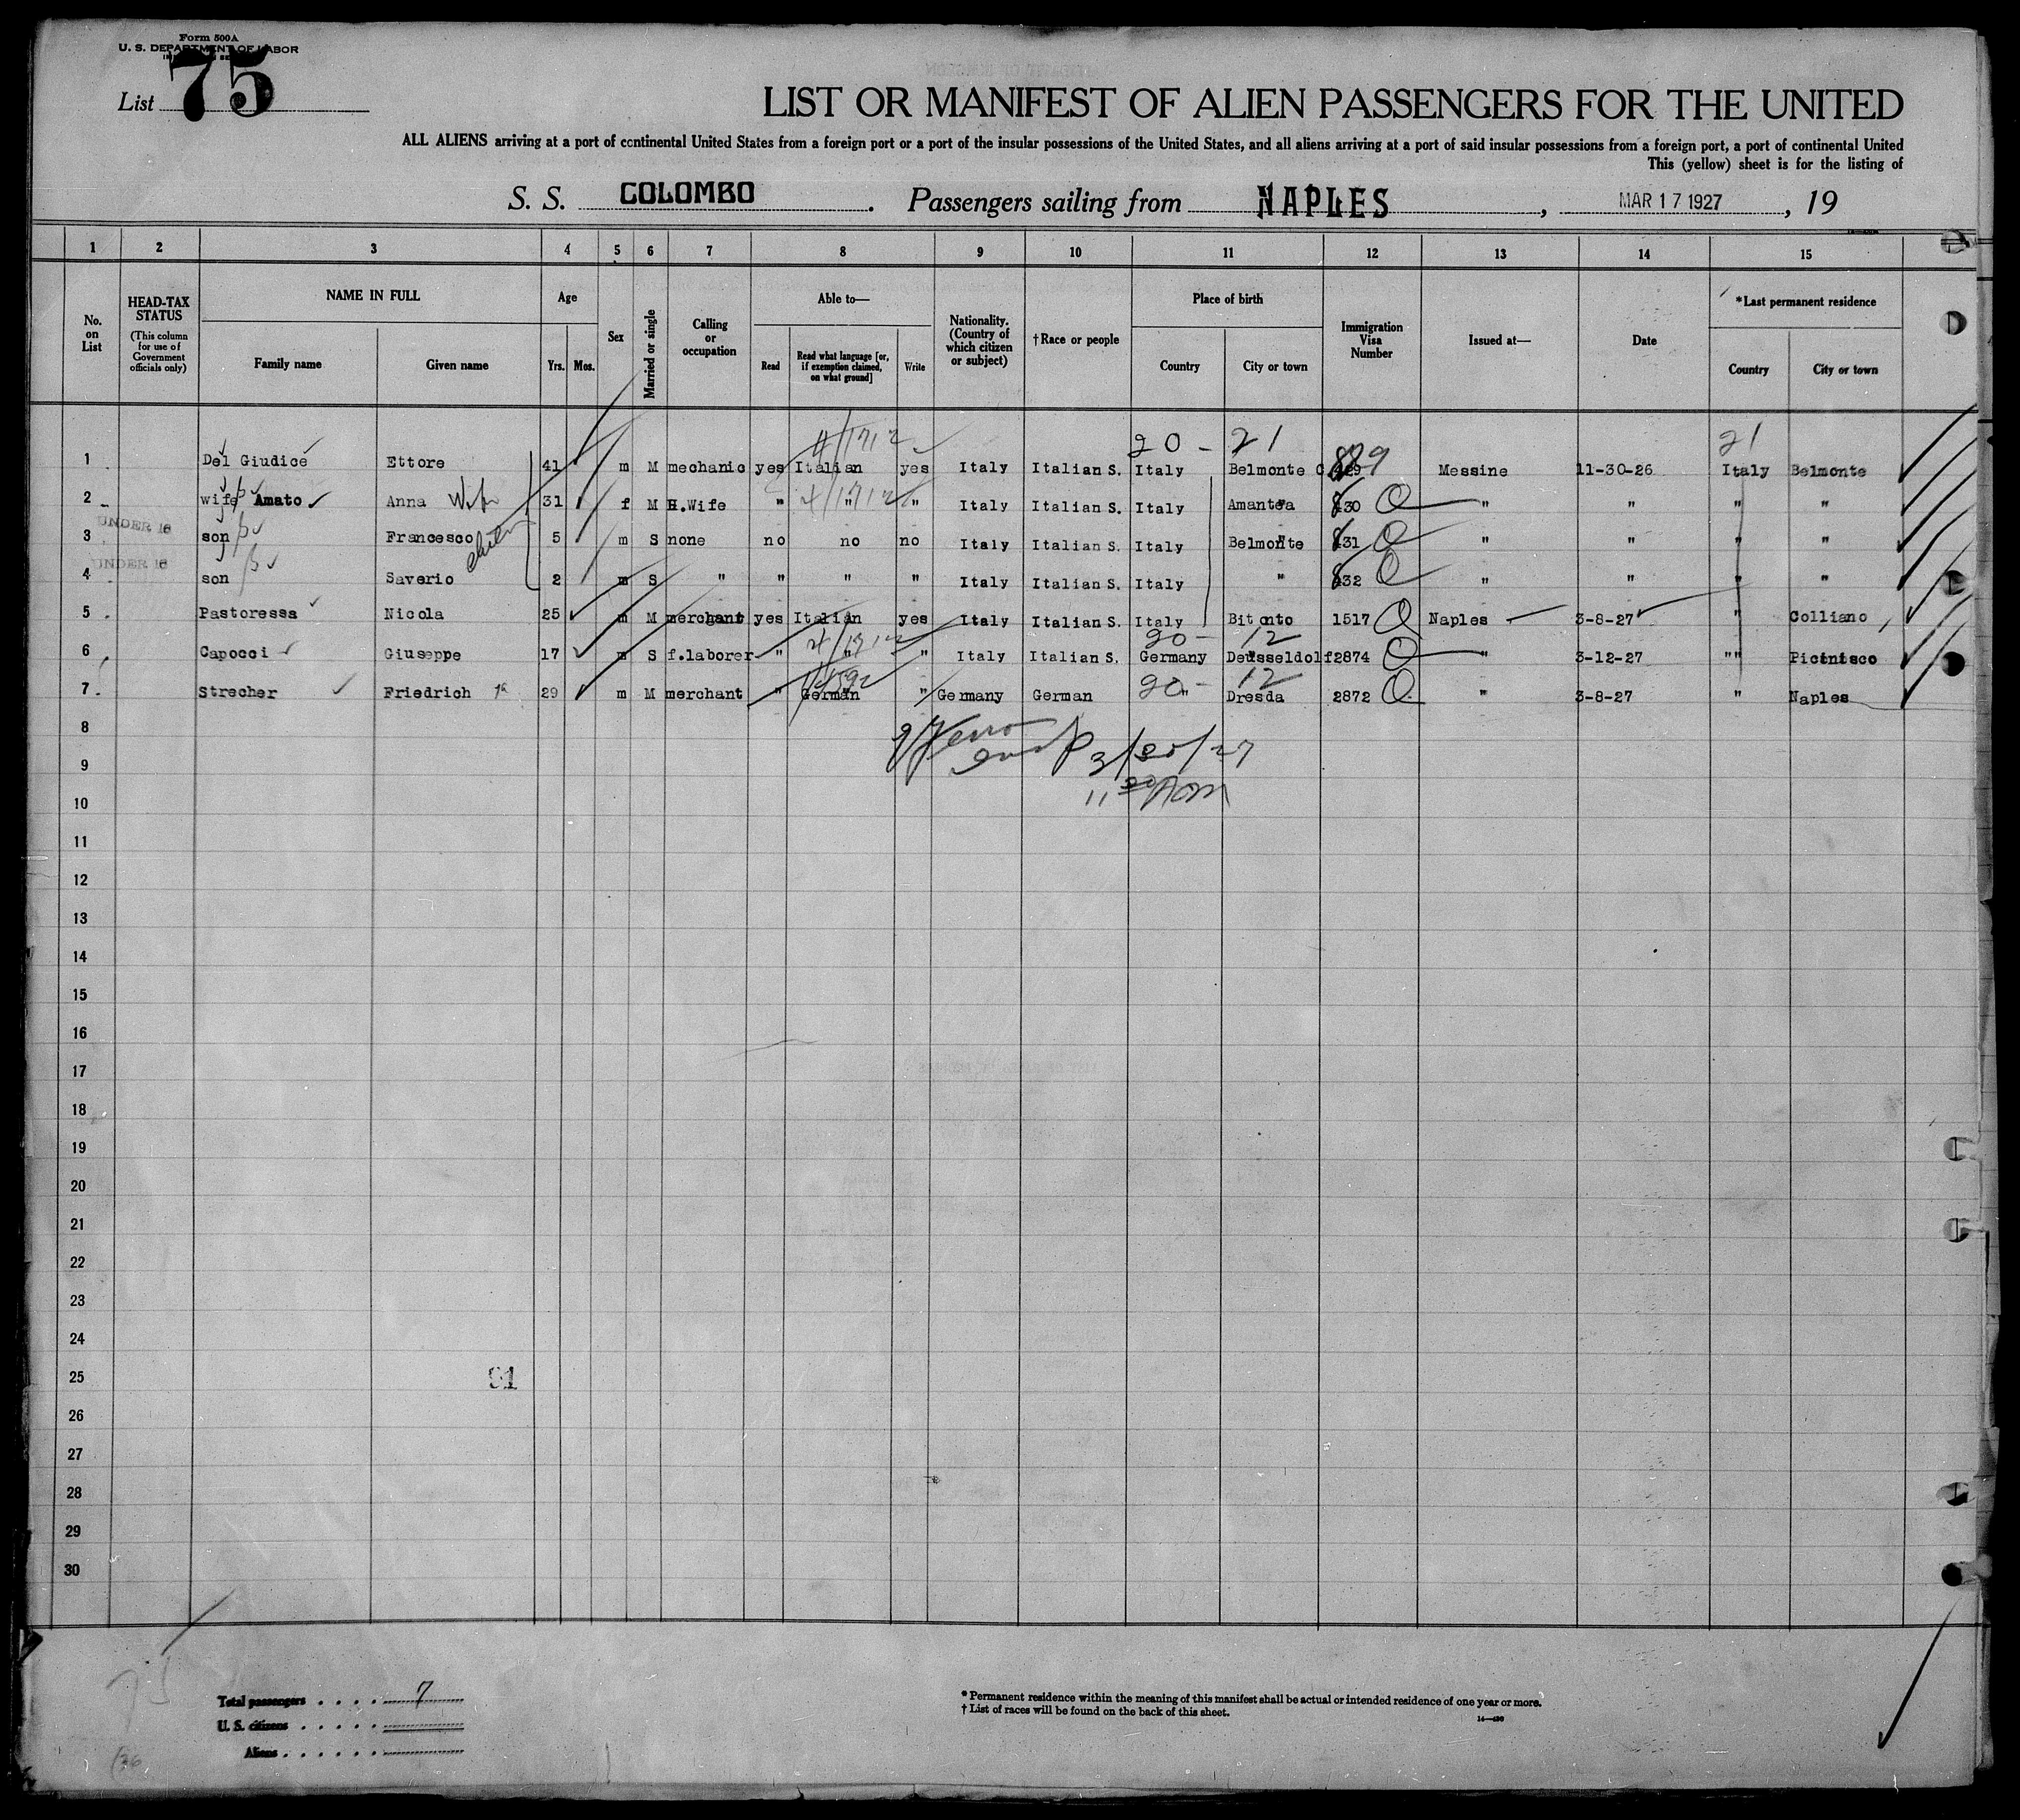 Form 500A
U. S. DEPARTMENT OF LABOR
List 75
LIST OR MANIFEST OF ALIEN PASSENGERS FOR THE UNITED
ALL ALIENS arriving at a port of continental United States from a foreign port or a port of the insular possessions of the United States, and all aliens arriving at a port of said insular possessions from a foreign port, a port of continental United
This (yellow) sheet is for the listing of
S. S. COLOMBO. Passengers sailing from NAPLES, MAR 17 1927, 19
1 2 3 4 5 6 7 8 9 10 11 12 13 14 15
No. on List
HEAD-TAX STATUS
(This column for use of Government officials only)
NAME IN FULL
Family name Given name
Age
Yrs. Mos.
Sex
Married or single
Calling or occupation
Able to—
Read
Read what language [or, if exemption claimed, on what ground]
Write
Nationality. (Country of which citizen or subject)
†Race or people
Place of birth
Country City or town
Immigration Visa Number
Issued at—
Date
*Last permanent residence
Country City or town
4/1712 20 - 21 889 21
1 Del Giudice Ettore 41 m M mechanic yes Italian yes Italy Italian S. Italy Belmonte C Messine 11-30-26 Italy Belmonte
2 wife Amato Anna Wife 31 f M H.Wife " 4/1712 " " Italy Italian S. Italy Amantea 830 " " " "
UNDER 16
3 son Francesco 5 m S none no no no Italy Italian S. Italy Belmonte 831 " " " "
UNDER 16
4 son Saverio 2 m S " " " " Italy Italian S. Italy " 832 " " " "
5 Pastoressa Nicola 25 m M merchant yes Italian yes Italy Italian S. Italy Bitonto 1517 Naples 3-8-27 " Colliano
4/1712 20 - 12
6 Capocci Giuseppe 17 m S f.laborer " " " Italy Italian S. Germany Deusseldolf 2874 " 3-12-27 "" Picinisco
20 - 12
7 Strecher Friedrich 29 m M merchant " German " Germany German " Dresda 2872 " 3-8-27 " Naples
8
3/30/27
9
10
11
12
13
14
15
16
17
18
19
20
21
22
23
24
25 91
26
27
28
29
30
Total passengers . . . . 7
U. S. citizens . . . . .
Aliens . . . . . .
* Permanent residence within the meaning of this manifest shall be actual or intended residence of one year or more.
† List of races will be found on the back of this sheet.
75